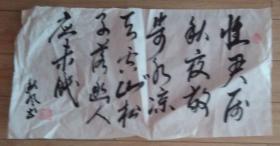 怀君属
秋夜散
步咏凉
天空山松
子落幽人
应未眠
书